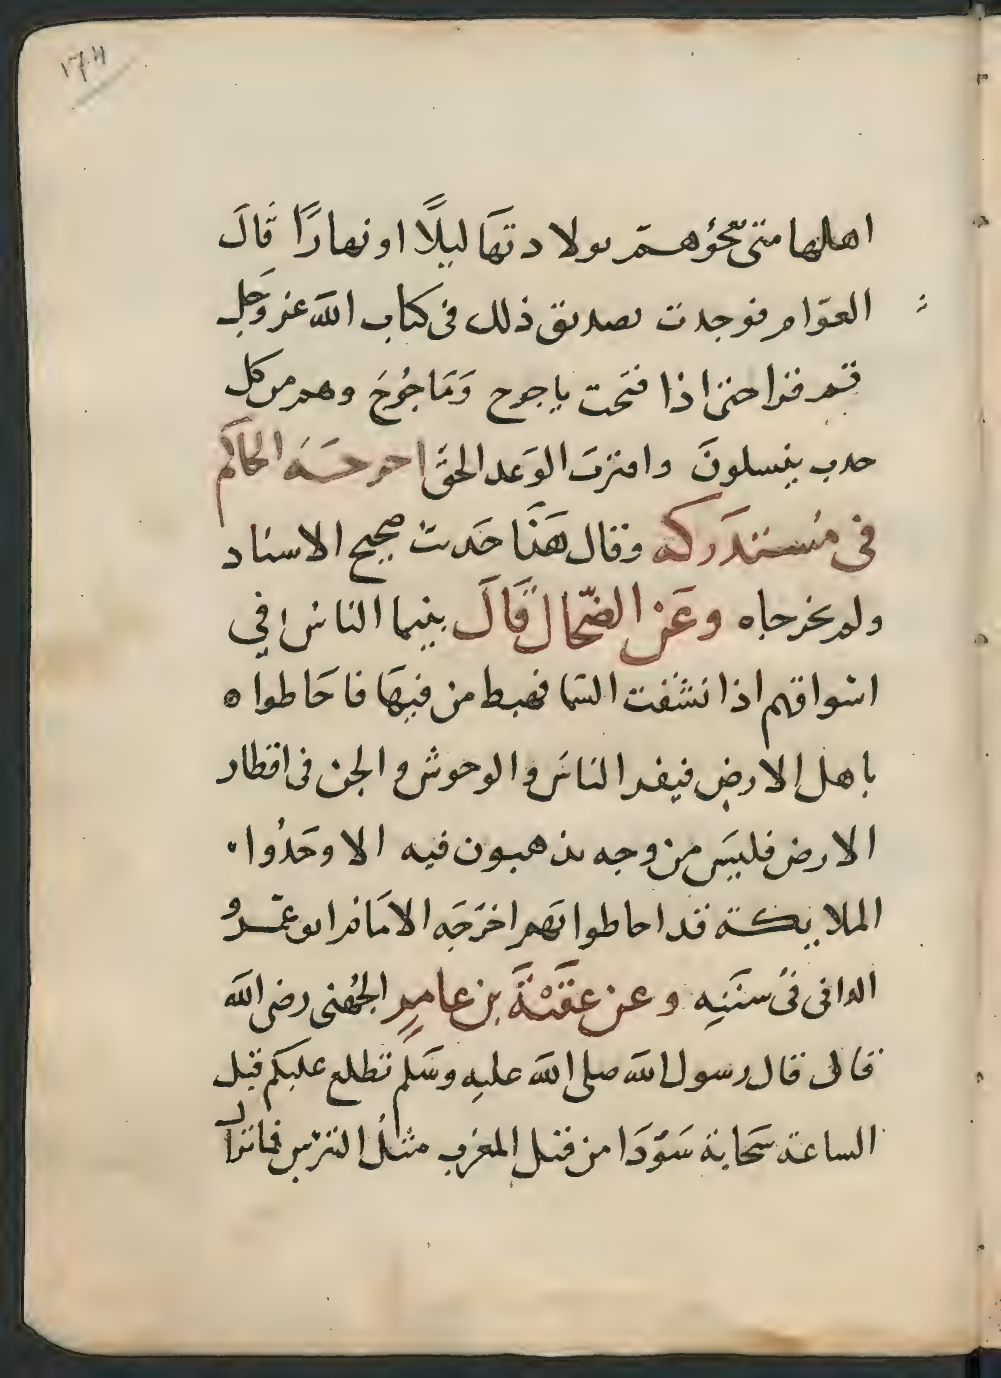 ١٧٣
اهلها متى تفجؤهم بولادتها ليلًا او نهارًا قال
العوّام فوجدت تصديق ذلك فى كتاب الله عز وجل
ثم قرا حتى اذا فتحت ياجوج وَمَاجُوجَ وهم من كل
حدب ينسلونَ واقتربَ الوَعد الحقّ اخرجَه الحاكم
فى مُستدرَكه وقال هَذَا حَديث صحيح الاسناد
ولم يخرجاه وعَن الضحّاك قَالَ بينما الناس فى
اسواقهم اذا نشقت السّما فهبط من فيهَا فاحَاطوا
باهل الارض فيفر الناسَ والوحوش والجن فى اقطار
الارض فليسَ من وجه يذهبون فيه الا وجَدُوا
الملايكة قد احاطوا بهم اخرَجَه الامَام ابو عَمرو
الدانى فى سُنَنِه وعن عقبَةَ بن عامرٍ الجُهنى رضى الله
قال قال رسول الله صلى الله عليه وسَلم تطلع عليكم قبل
الساعة سَحابة سَوّدَا من قبل المغرب مثلُ الترس فما تزال